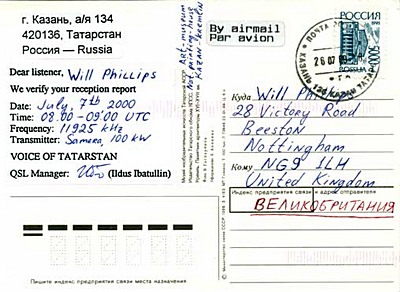 г. Казань, а/я 134
420136, Татарстан
Россия — Russia
Dear listener, Will Phillips
We verify your reception report
Date: July, 7th 2000
Time: 08.00-09.00 UTC
Frequency: 11925 kHz
Transmitter: Samara, 100 kW
VOICE OF TATARSTAN
QSL Manager: (Ildus Ibatullin)
Art-museum
Kazan-Kremlin
By airmail
Par avion
РОССИЯ
1998
Куда Will Phillips
28 Victory Road
Beeston
Nottingham
Кому NG9 1LH
United Kingdom
Индекс предприятия связи и адрес отправителя
ВЕЛИКОБРИТАНИЯ
Пишите индекс предприятия связи места назначения